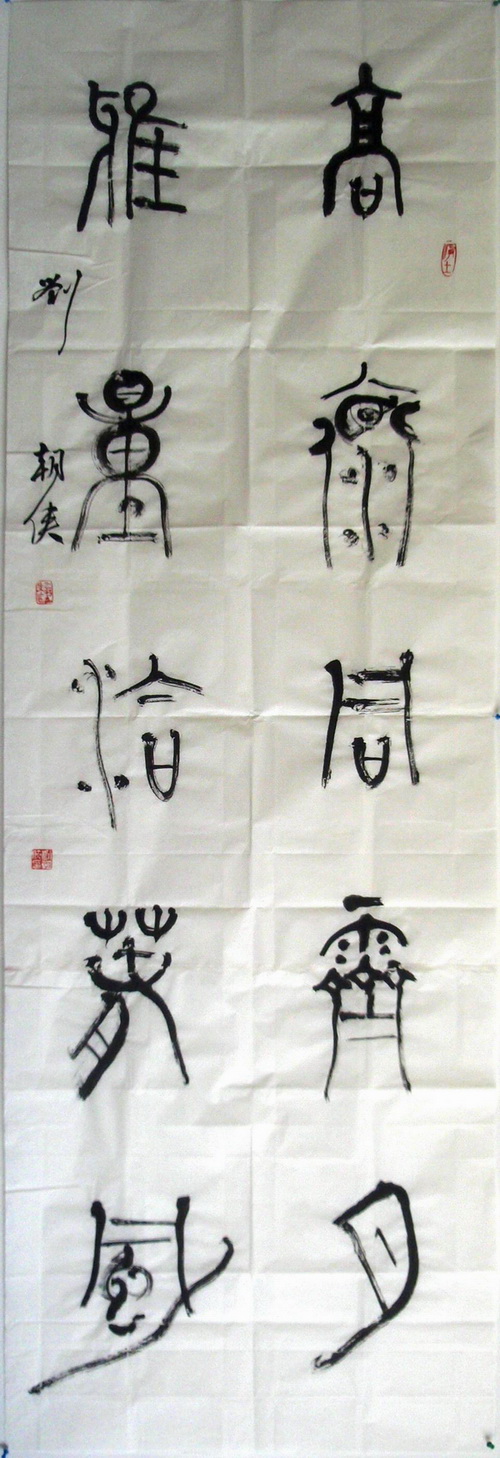 高褱同霽月
雅量洽春風
劉朝俠